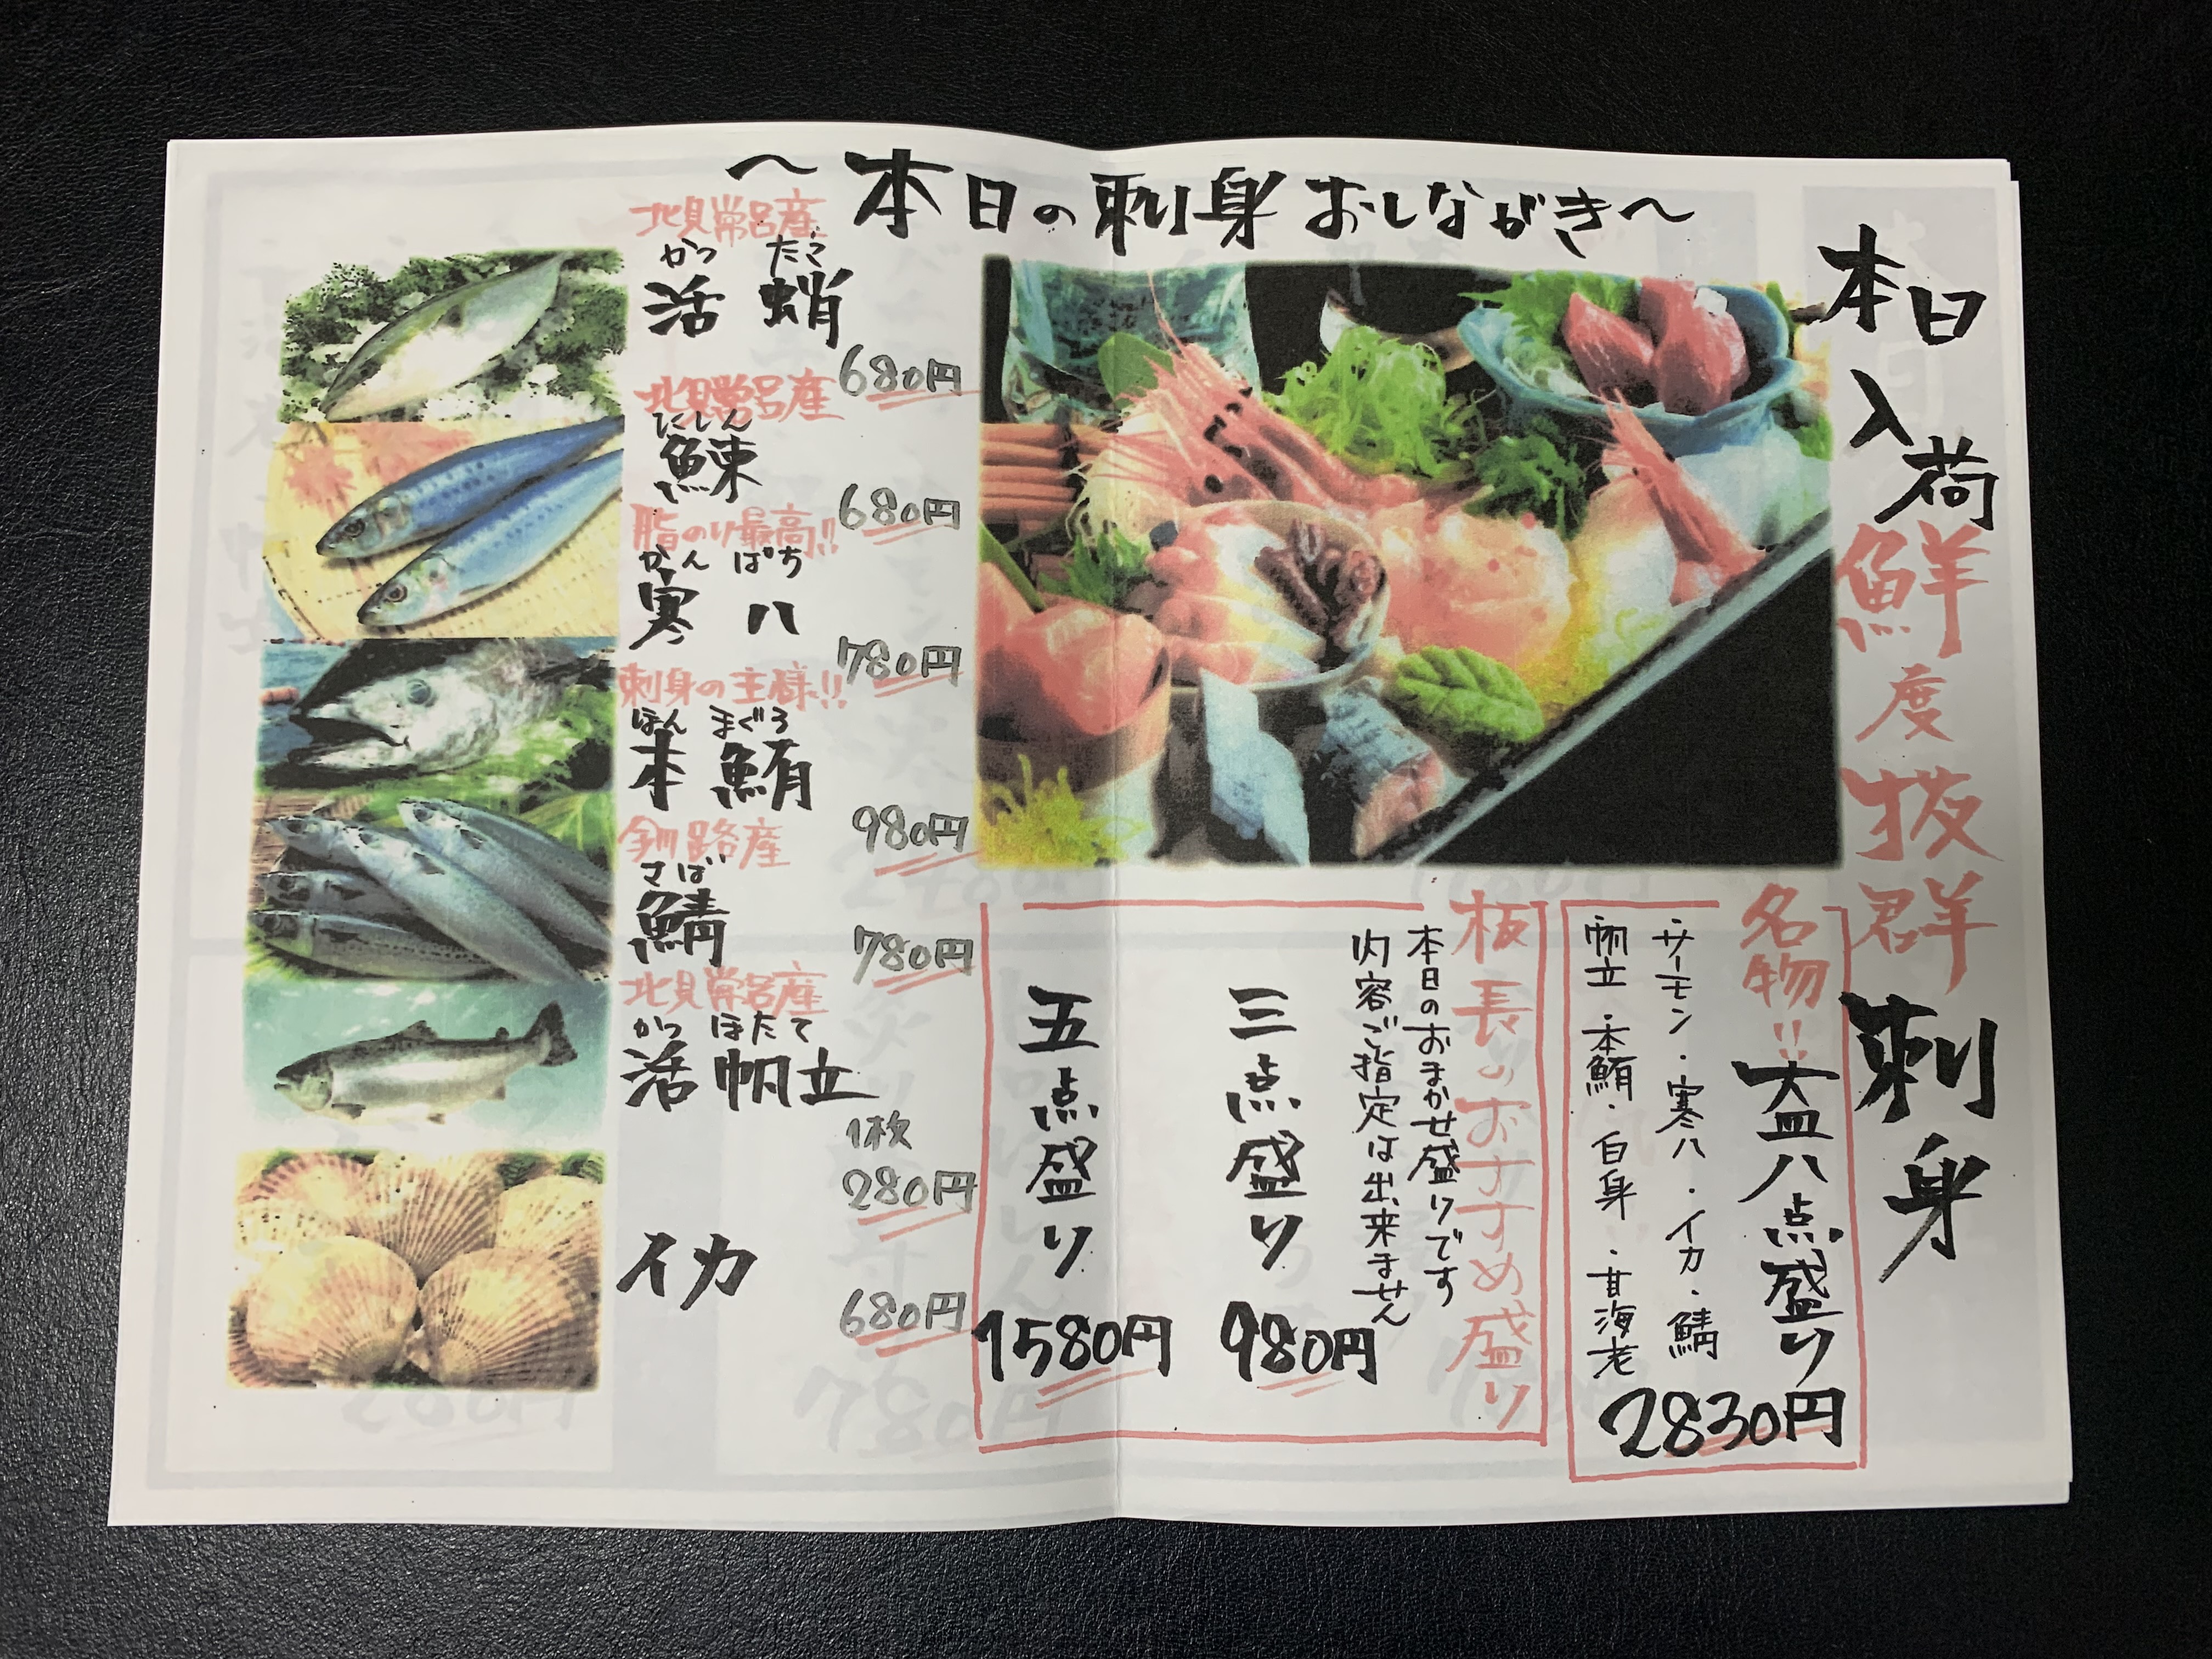 ～本日の刺身おしながき～
本日入荷
鮮度抜群
刺身
名物!!
八点盛り
サーモン・寒八・イカ・鯖
帆立・本鮪・白身・甘海老
2830円
板長のおすすめ盛り
本日のおまかせ盛りです
内容ご指定は出来ません
三点盛り
980円
五点盛り
1580円
北見常呂産
かつ たこ
活 蛸
680円
北見常呂産
にしん
鰊
680円
脂のり最高!!
かん ぱち
寒 八
780円
刺身の王様!!
ほん まぐろ
本 鮪
980円
釧路産
さば
鯖
780円
北見常呂産
かつ ほたて
活 帆立
1枚
280円
イカ
680円